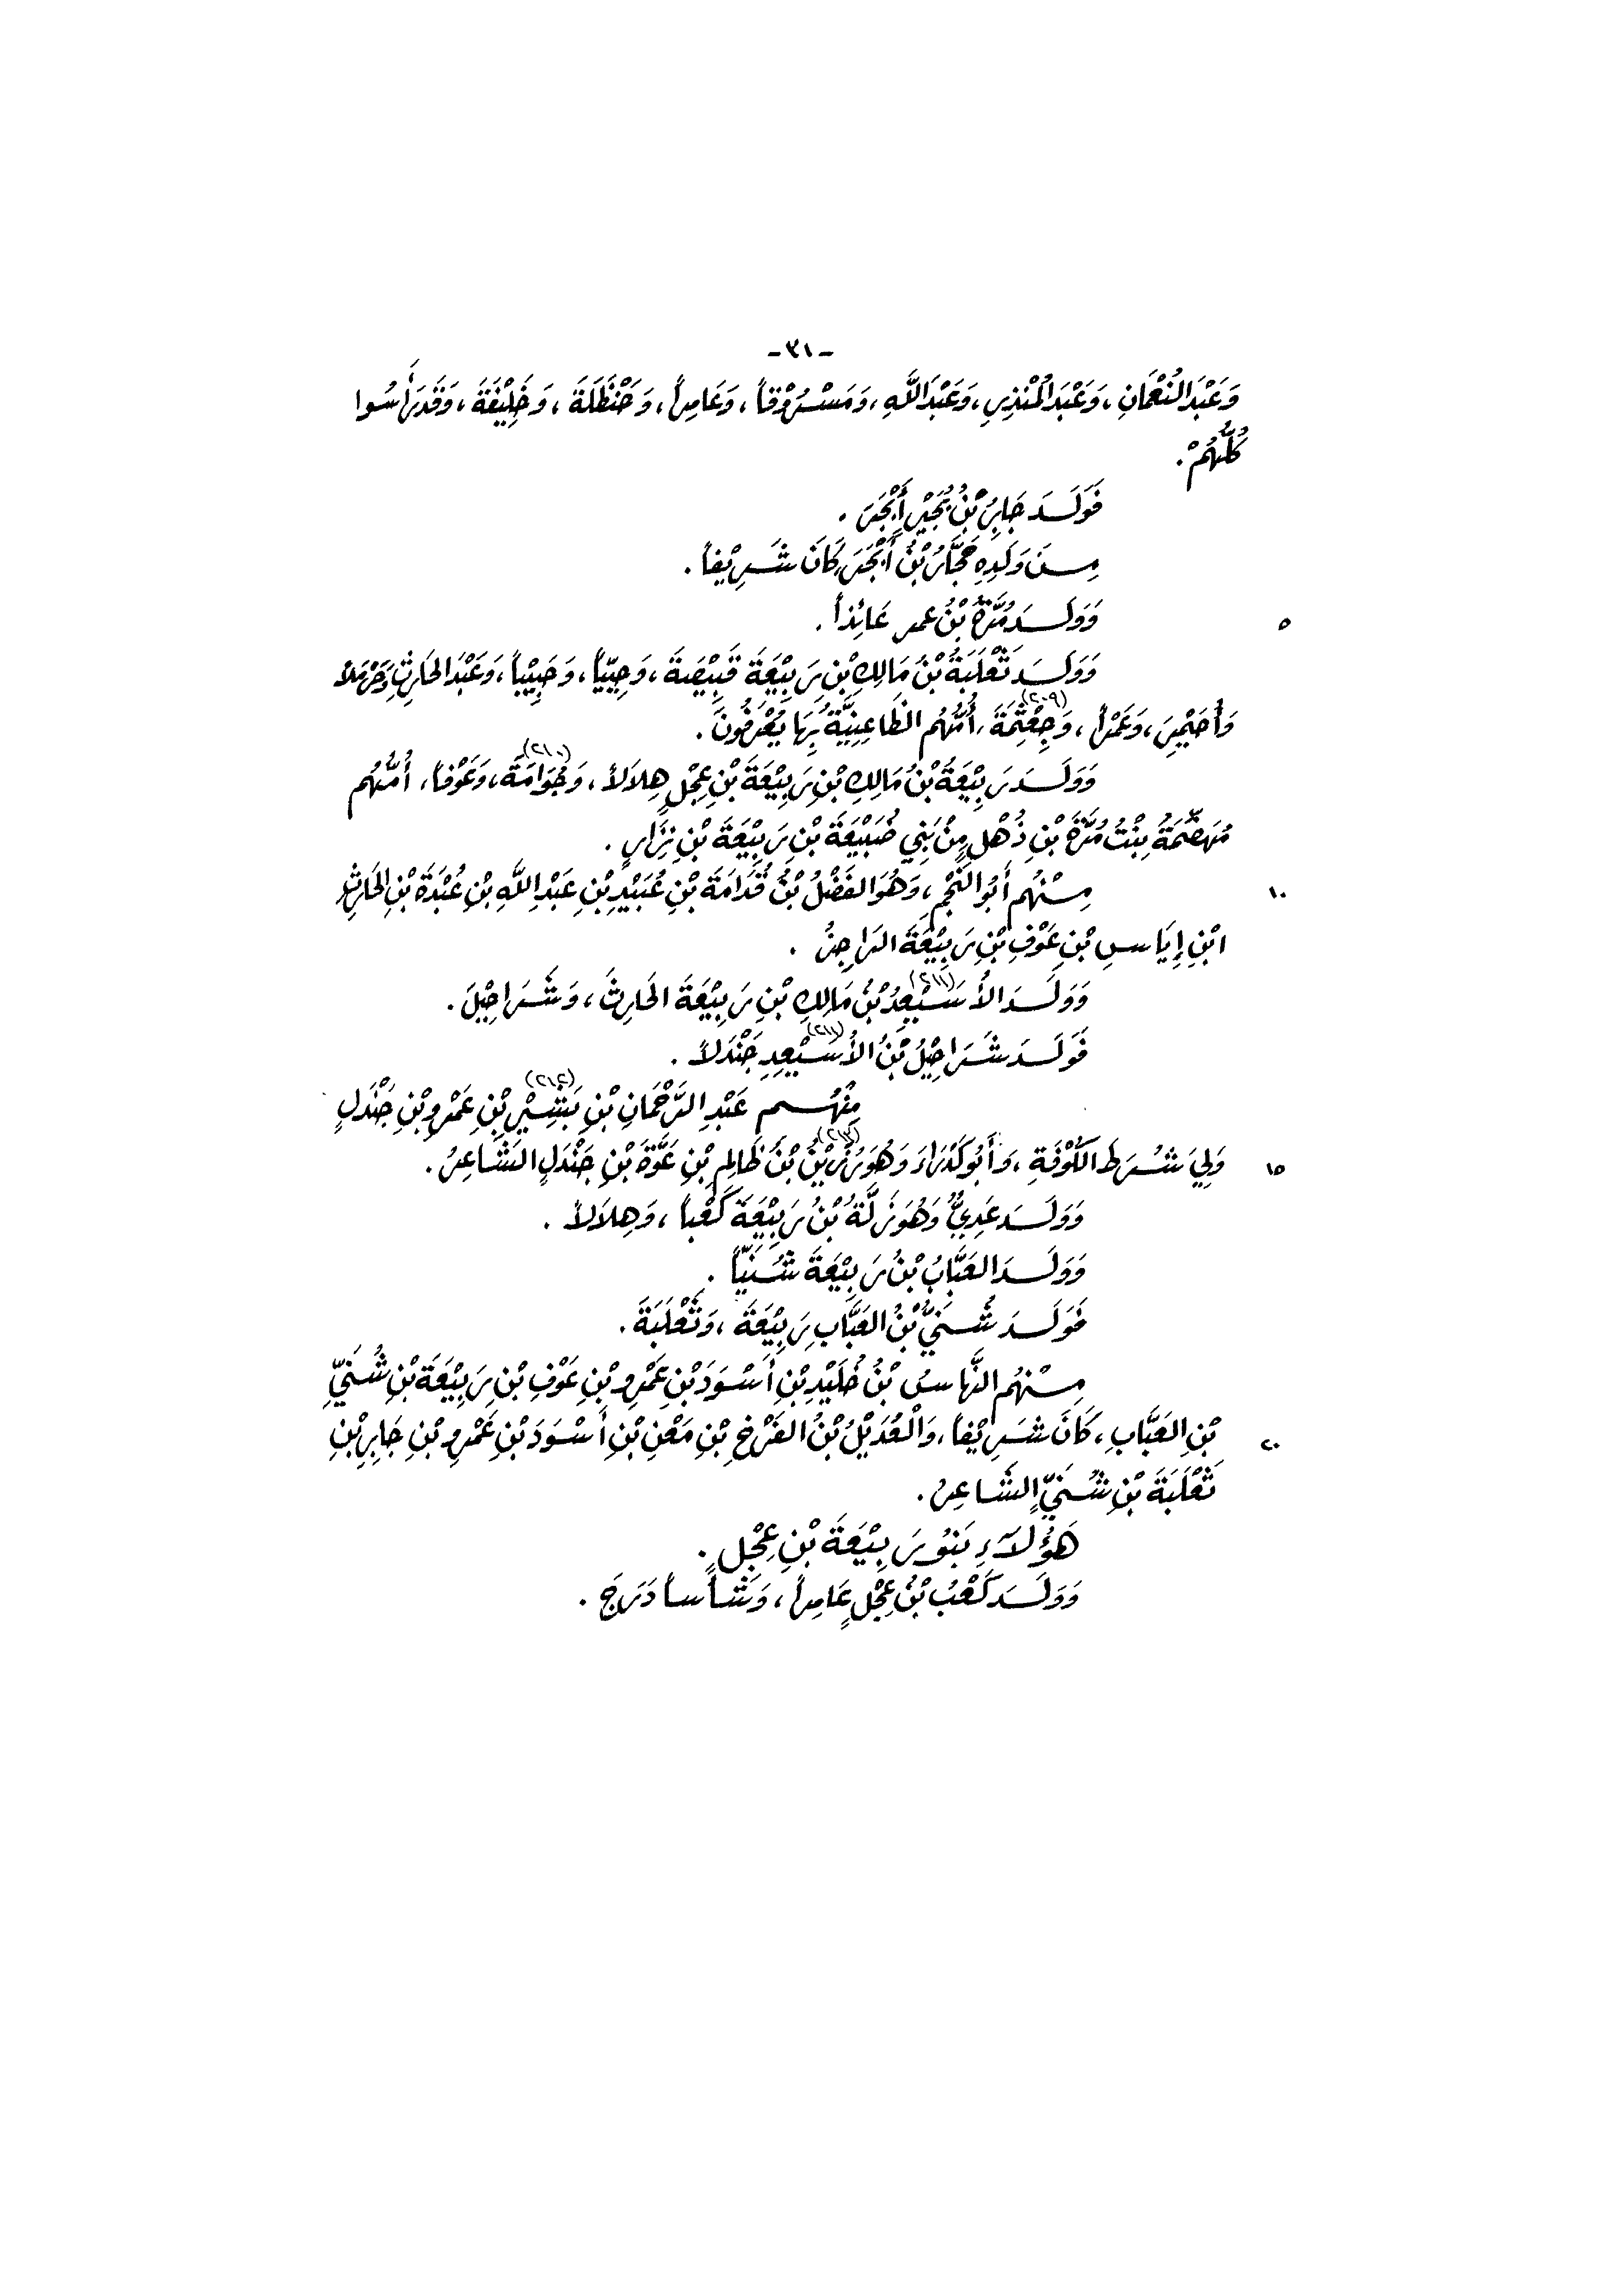 -٣١-
وَعَبْدَ النُعْمَانِ، وَعَبْدَ المُنْذِرِ، وَعَبْدَ اللَّهِ، وَمَسْرُوْقاً، وَعَامِراً، وَحَنْظَلَةَ، وَخَلِيْفَةَ، وَقَدْ رَأَسُوا
كُلُّهُمْ.
فَوَلَدَ جَابِرُ بْنُ بُجَيْرٍ أَبْجَرَ.
مِنْ وَلَدِهِ حَجَّارُ بْنُ أَبْجَرَ، كَانَ شَرِيْفاً.
٥ وَوَلَدَ مُرَّةُ بْنُ عمرٍ عَائِذاً.
وَوَلَدَ ثَعْلَبَةُ بْنُ مَالِكِ بْنِ رَبِيْعَةَ قَبِيْصَةَ، وَحِيِيّاً، وَحَبِيْباً، وَعَبْدَ الحَارِثِ، وَحَرْمَلاً
وَأُحَيْمِرَ، وَعَمْراً، وَجِعْثِمَةَ (٢٠٩)، أُمُّهُم الظَاعِنِيَّةُ بِهَا يُعْرَفُونَ.
وَوَلَدَ رَبِيْعَةُ بْنُ مَالِكِ بْنِ رَبِيْعَةَ بْنِ عِجْلٍ هِلاَلاً، وَجُوَامَةَ (٢١٠)، وَعَوْفاً، أُمُّهُم
مُهَضِّمَةُ بِنْتُ مُرَّةَ بْنِ ذُهْلٍ مِنْ بَنِي ضُبَيْعَةَ بْنِ رَبِيْعَةَ بْنِ نِزَارٍ.
١٠ مِنْهُم أَبُو النَجْمِ، وَهُوَ الفَضْلُ بْنُ قُدَامَةَ بْنِ عُبَيْدِ بْنِ عَبْدِ اللَّهِ بْنِ عُبْدَةَ بْنِ الحَارِثِ
ابْنِ إِيَاسِ بْنِ عَوْفِ بْنِ رَبِيْعَةَ الرَاجِزُ.
وَوَلَدَ الأُسَيْعِدُ (٢١١) بْنُ مَالِكِ بْنِ رَبِيْعَةَ الحَارِثَ، وَشَرَاحِيْلَ.
فَوَلَدَ شَرَاحِيْلُ بْنُ الأُسَيْعِدِ (٢١١) جَنْدَلاً.
مِنْهُم عَبْدُ الرَّحْمَانِ بْنِ بَشِيْرِ (٢١٢) بْنِ عَمْرِو بْنِ جَنْدَلٍ
١٥ وَلِيَ شُرَطَ الكُوْفَةِ، وَأَبُو كَدْرَاءَ وَهُوَ رُزَيْنُ (٢١٣) بْنُ ظَالِمِ بْنِ عَوَّةَ بْنِ جَنْدَلٍ الشَاعِرُ.
وَوَلَدَ عَدِيٌّ وَهُوَ زَلَّةُ بْنُ رَبِيْعَةَ كَعْباً، وَهِلاَلاً.
وَوَلَدَ العَبَّابُ بْنُ رَبِيْعَةَ شُنَيّاً.
فَوَلَدَ شُنَيُّ بْنُ العَبَّابِ رَبِيْعَةَ، وَثَعْلَبَةَ.
مِنْهُم النَّهَاسُ بْنُ خُلَيْدِ بْنِ أَسْوَدَ بْنِ عَمْرِو بْنِ عَوْفِ بْنِ رَبِيْعَةَ بْنِ شُنَيِّ
٢٠ بْنِ العَبَّابِ، كَانَ شَرِيْفاً، وَالْعُدَيْلُ بْنُ الفَرْخِ بْنِ مَعْنِ بْنِ أَسْوَدَ بْنِ عَمْرِو بْنِ جَابِرِ بْنِ
ثَعْلَبَةَ بْنِ شُنَيٍّ الشَاعِرُ.
هَؤُلاَءِ بَنُو رَبِيْعَةَ بْنِ عِجْلٍ.
وَوَلَدَ كَعْبُ بْنُ عِجْلٍ عَامِراً، وَشَأْساً دَرَجَ.